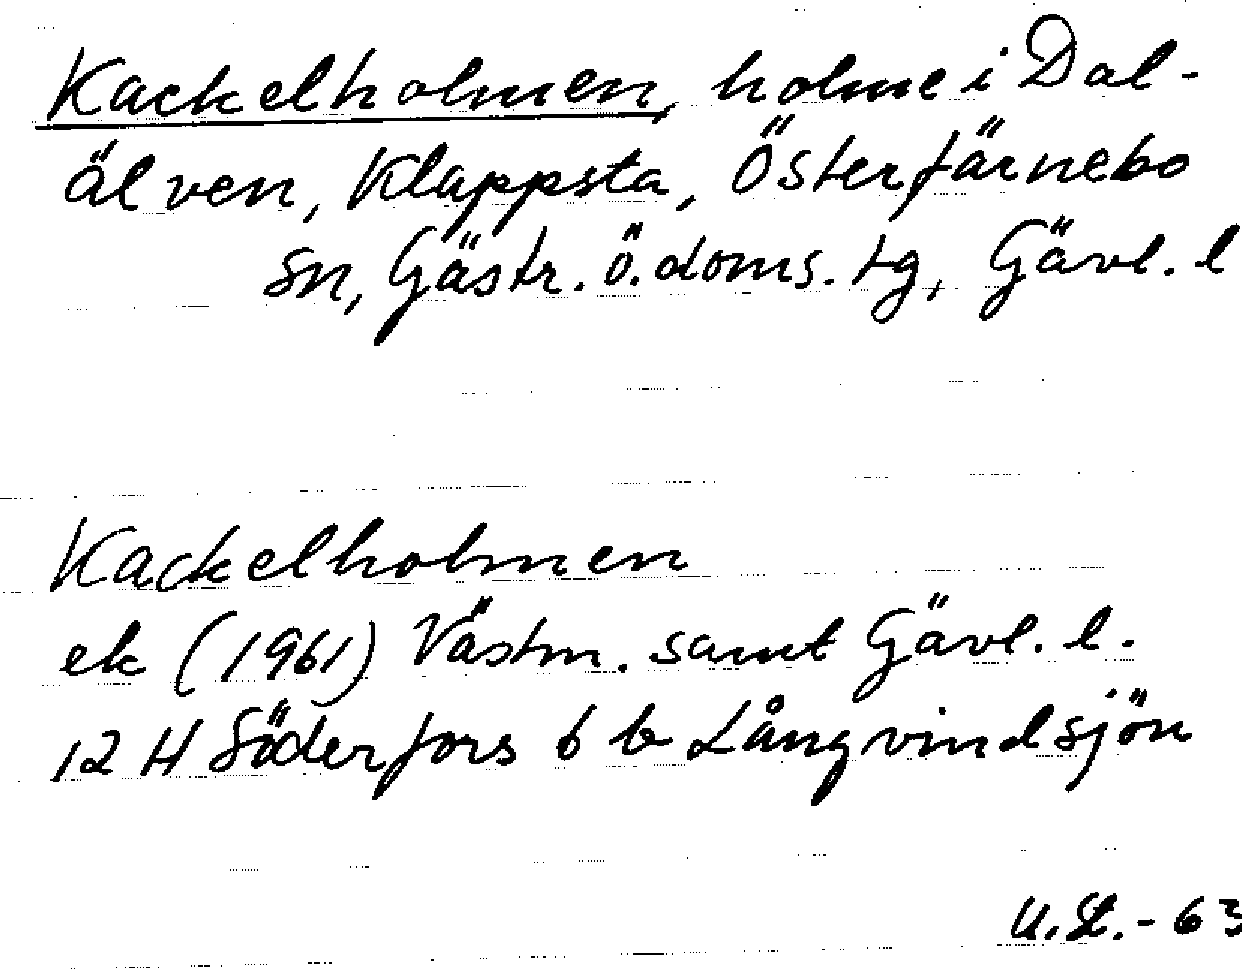 Kackelholmen, holme i Dal-
älven, Klappsta, Österfärnebo
sn, Gästr. ö. doms. tg, Gävl. l
Kackelholmen
ek (1961) Västm. samt Gävl. l.
12 H Söderfors 6 b Långvindsjön
U.L. - 63